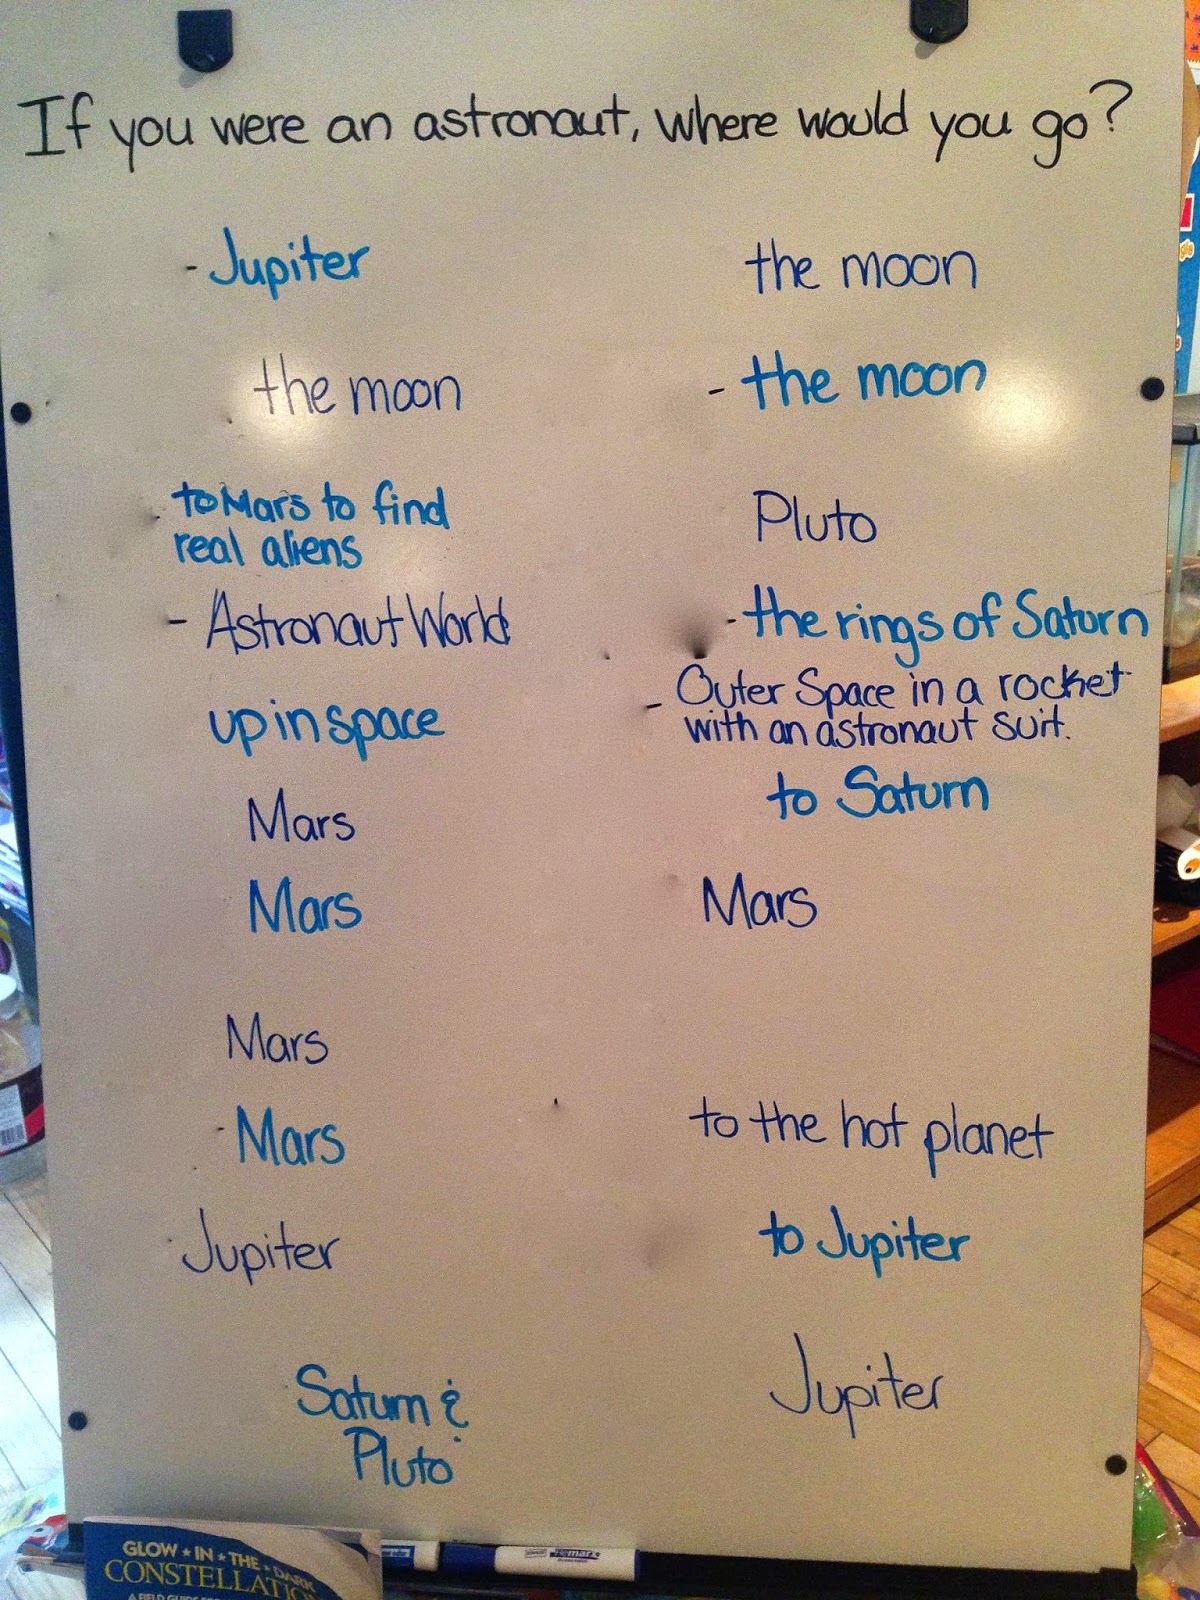 If you were an astronaut, where would you go?
- Jupiter
the moon
to Mars to find
real aliens
- Astronaut World
up in space
Mars
Mars
Mars
- Mars
Jupiter
Saturn &
Pluto
the moon
- the moon
Pluto
- the rings of Saturn
- Outer Space in a rocket
with an astronaut suit.
to Saturn
Mars
to the hot planet
to Jupiter
Jupiter
GLOW ★ IN ★ THE ★ DARK